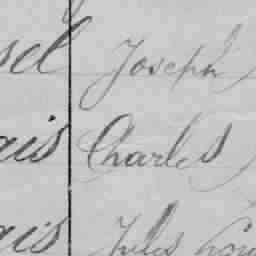 sel Joseph
ais Charles
ais Jules Lou